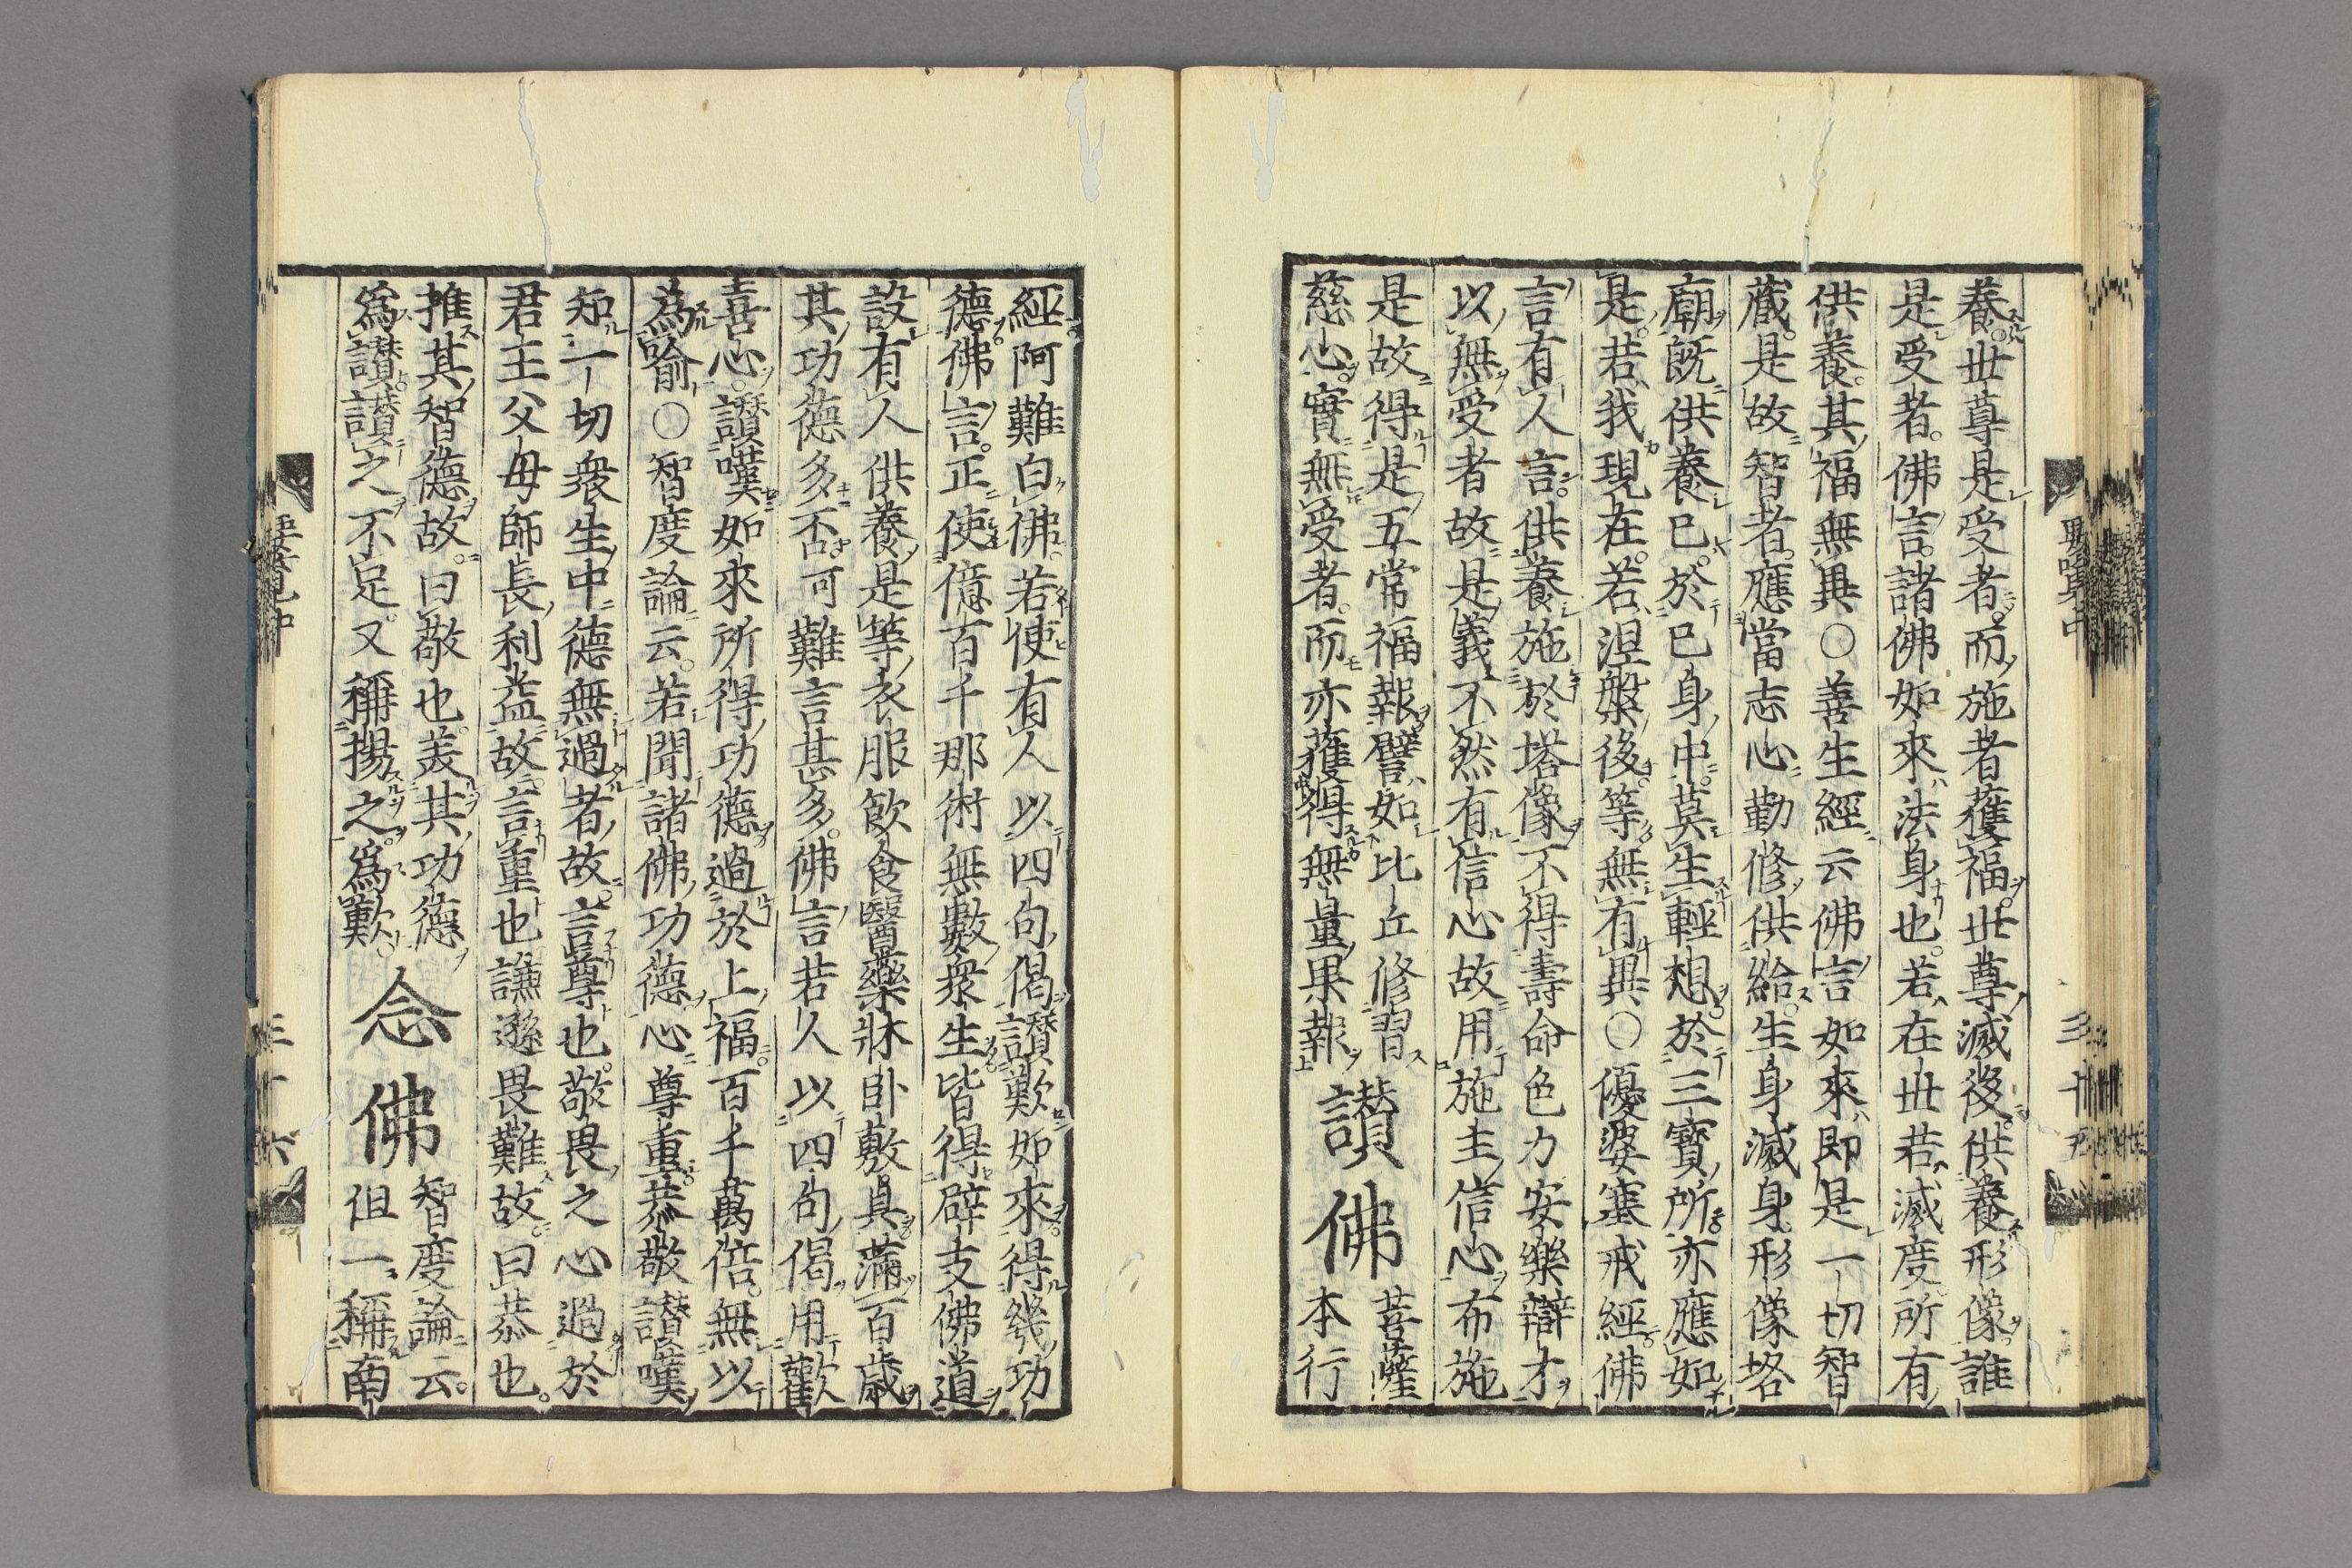 養世尊是受者而施者獲福世尊滅後供養形像誰
是受者佛言諸佛如來法身也若在世若滅度所有
供養其福無異○善生經云佛言如來即是一切智
藏是故智者應當志心勤修供給生身滅身形像塔
廟既供養已於己身中莫生輕想於三寶所亦應如
是若我現在若涅槃後等無有異○優婆塞戒經佛
言有人言供養施於塔像不得壽命色力安樂辯才
以無受者故是義不然有信心故用施主信心布施
是故得是五常福報譬如比丘修習
慈心實無受者而亦獲得無量果報
讃佛
菩薩
本行
經阿難白佛若使有人以四句偈讃歎如來得幾功
德佛言正使億百千那術無數衆生皆得辟支佛道
設有人供養是等衣服飲食醫藥牀臥敷具滿百歳
其功德多不阿難言甚多佛言若人以四句偈用歡
喜心讃嘆如來所得功德過於上福百千萬倍無以
爲喩○智度論云若聞諸佛功德心尊重恭敬讃嘆
知一切衆生中德無過者故言尊也敬畏之心過於
君王父母師長利益故言重也謙遜畏難故曰恭也
推其智德故曰敬也羨其功德
爲讃讃之不足又稱揚之爲歎
念佛
智度論云
但一稱南